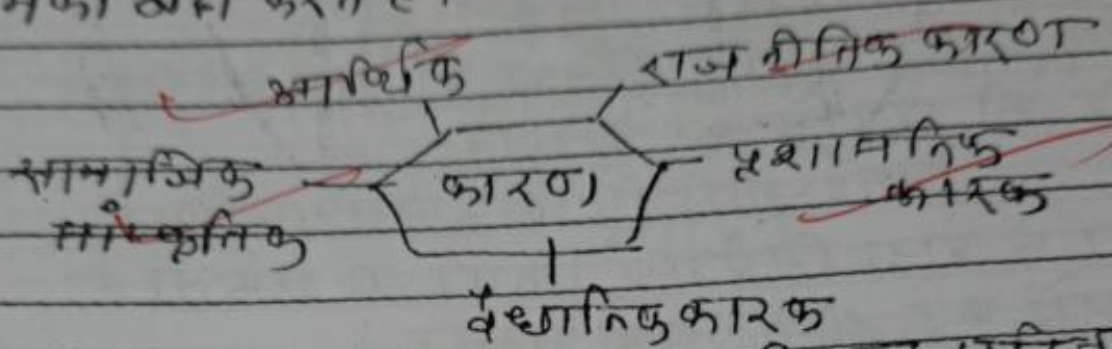 आर्थिक
राजनीतिक कारण
सामाजिक
सांस्कृतिक
कारण
प्रशासनिक
कारक
वैधानिक कारक